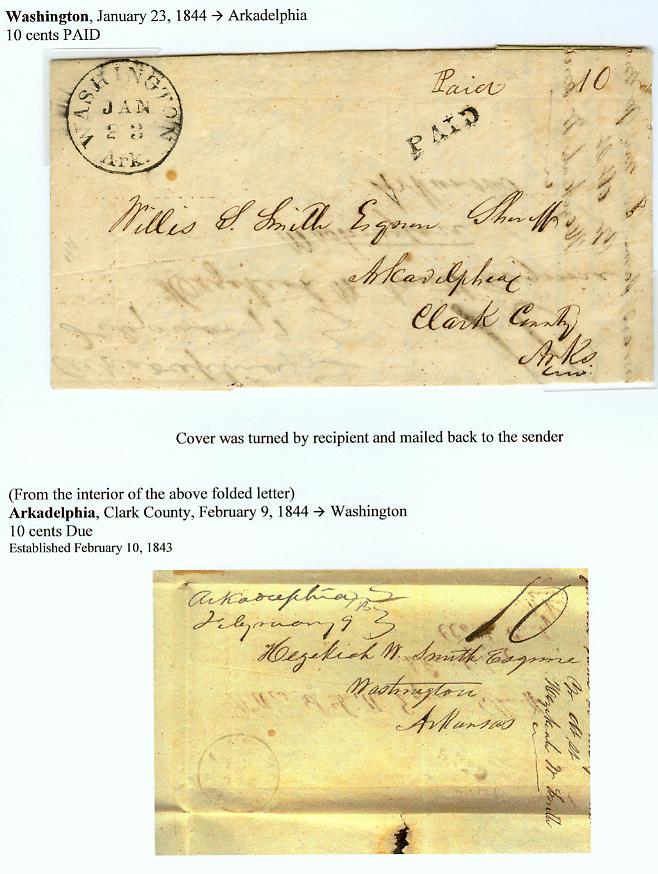 Washington, January 23, 1844 → Arkadelphia
10 cents PAID
WASHINGTON
JAN
23
Ark.
Paid 10
PAID
Willis S. Smith Esquire Sheriff
Arkadelphia
Clark County
Arks
Cover was turned by recipient and mailed back to the sender
(From the interior of the above folded letter)
Arkadelphia, Clark County, February 9, 1844 → Washington
10 cents Due
Established February 10, 1843
Arkadelphia
February 9
10
Hezekiah W. Smith Esquire
Washington
Arkansas
Hezekiah W Smith